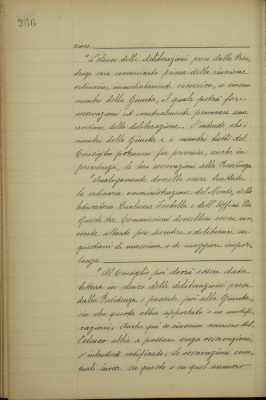 266
"L'elenco delle deliberazioni prese dalla Presi-
denza sarà comunicato prima della riunione
ordinaria, immediatamente successiva, a ciascun
membro della Giunta, il quale potrà fare
osservazioni ed eventualmente provocare una
revisione della deliberazione. S'intende che i
membri della Giunta e i membri tutti del
Consiglio potranno far pervenire, anche in
precedenza, le loro osservazioni alla Presidenza.
"Analogamente dovrebbe essere trattata
la ordinaria amministrazione del Monte, dello
Educatorio Duchessa Isabella e dell'Ufficio
Queste tre Commissioni dovrebbero essere con-
vocate soltanto per discutere e deliberare su
questioni di massima o di maggior impor-
tanza.
"Al Consiglio poi dovrà essere data
lettura in elenco delle deliberazioni prese
dalla Presidenza e passate poi alla Giunta,
sia che questa abbia apportato o no modifi-
cazioni; anche qui se nessun numero del-
l'elenco abbia a passare senza osservazioni,
s'intenderà ratificato. Le osservazioni even-
tuali invece su questo o su quel numero